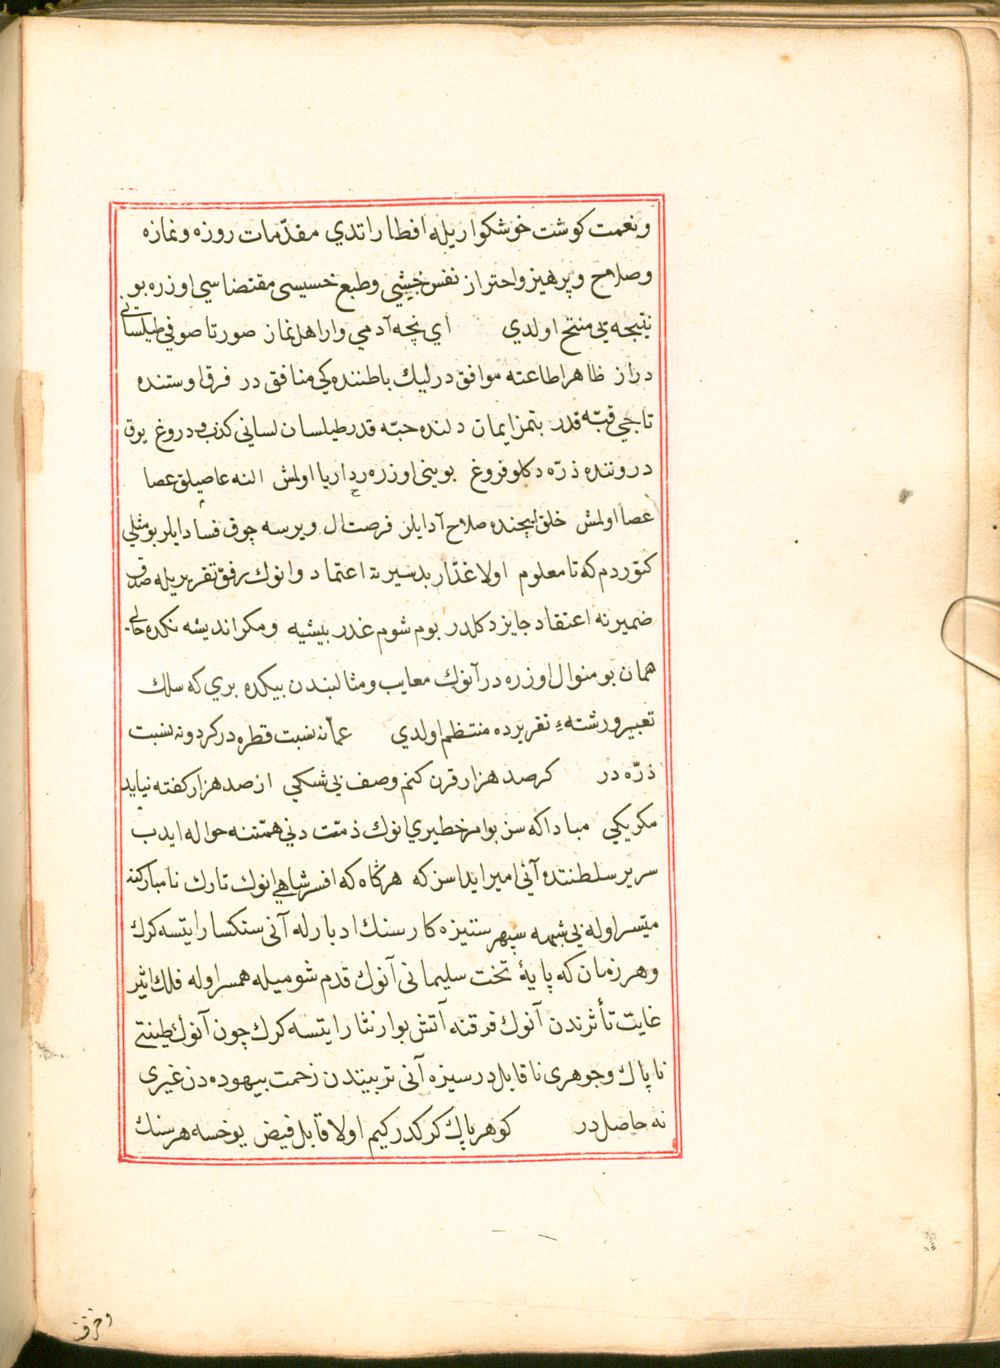 ونعمت كوشت خوشكوار يله افطار اتدي مقدّمات روزه ونمازه
وصلاح وپرهيز واحتراز نفس خبيثي وطبع خسيسى مقتضاسي اوزره بو
نتيجه يى منتج اولدي اي نچه آدمي وار اهل نماز صورتا صوفي طيلساني
دراز ظاهرا طاعته موافق در ليك باطننده كي منافق در فرقى اوستنده
تاجي قبّه قدر بتمز ايمان دلنده حبّه قدر طيلسان لساني كذب ودروغ يوق
دروننده ذرّه دكلو فروغ بوينى اوزره ردا ريا اولمش النه عاصيلق عصا
عصا اولمش خلق ايچنده صلاح آد ايلر فرصت ال ويرسه چوق فساد ايلر بو مثلي
كتوردم كه تا معلوم اولا غدّار بدسيرته اعتماد وانوك رفق تقرير يله صدق
ضميرنه اعتقاد جايز دكلدر بوم شوم غدر پيشيه ومكر انديشه نكده حالى
همان بو منوال اوزره در آنوك معايب ومثالبندن بيكده بري كه سلك
تعبير ورشتهٔ تقريرده منتظم اولدي عمّانه نسبت قطره در كردونه نسبت
ذرّه در كر صد هزار قرن كنم وصف بى شكى از صد هزار كفته نيايد
مكر يكي مبادا كه سز بو امر خطيري انوك ذمّت دني همّتنه حواله ايدب
سرير سلطنتده آني امير ايداسز كه هر كاه كه افسر شاهي انوك تارك نامباركنه
ميّسر اوله بى شبهه سپهر ستيزه كار سنك ادبار له آنى سنكسار ايتسه كرك
وهر زمان كه پايهٔ تخت سليمانى آنوك قدم شوميله همسر اوله فلك اثير
غايت تأثرندن آنوك فرقنه آتش بوار نثار ايتسه كرك چون آنوك طينتى
ناپاك وجوهرى ناقابلدر سيزه آنى تربيتدن زحمت بيهوده دن غيرى
نه حاصلدر كوهر پاك كركدر كيم اولا قابل فيض يوخسه هر سنك
وخزف